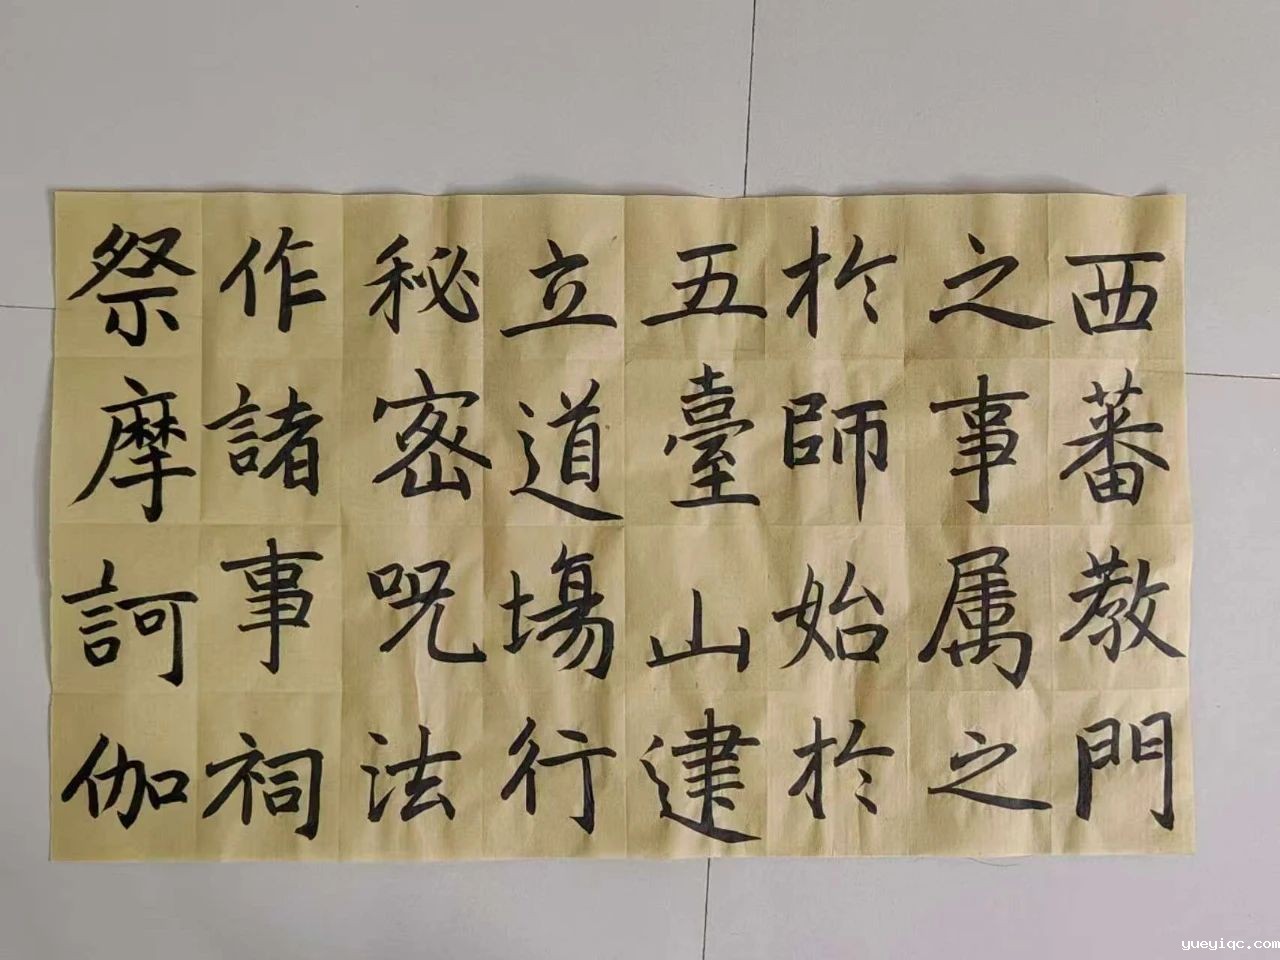 西蕃教門
之事属之
於師始於
五臺山建
立道場行
秘密呪法
作諸事祠
祭摩訶伽
yueyiqc.com